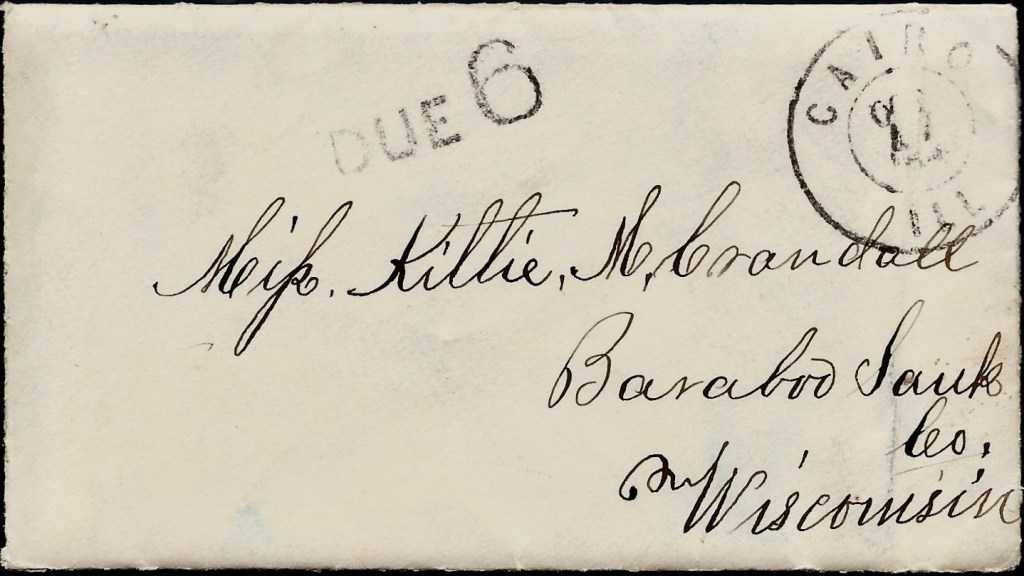 DUE 6
CAIRO
ILL
Miſs. Kittie, M, Crandall
Baraboo Sauk
Co.
Wisconsin